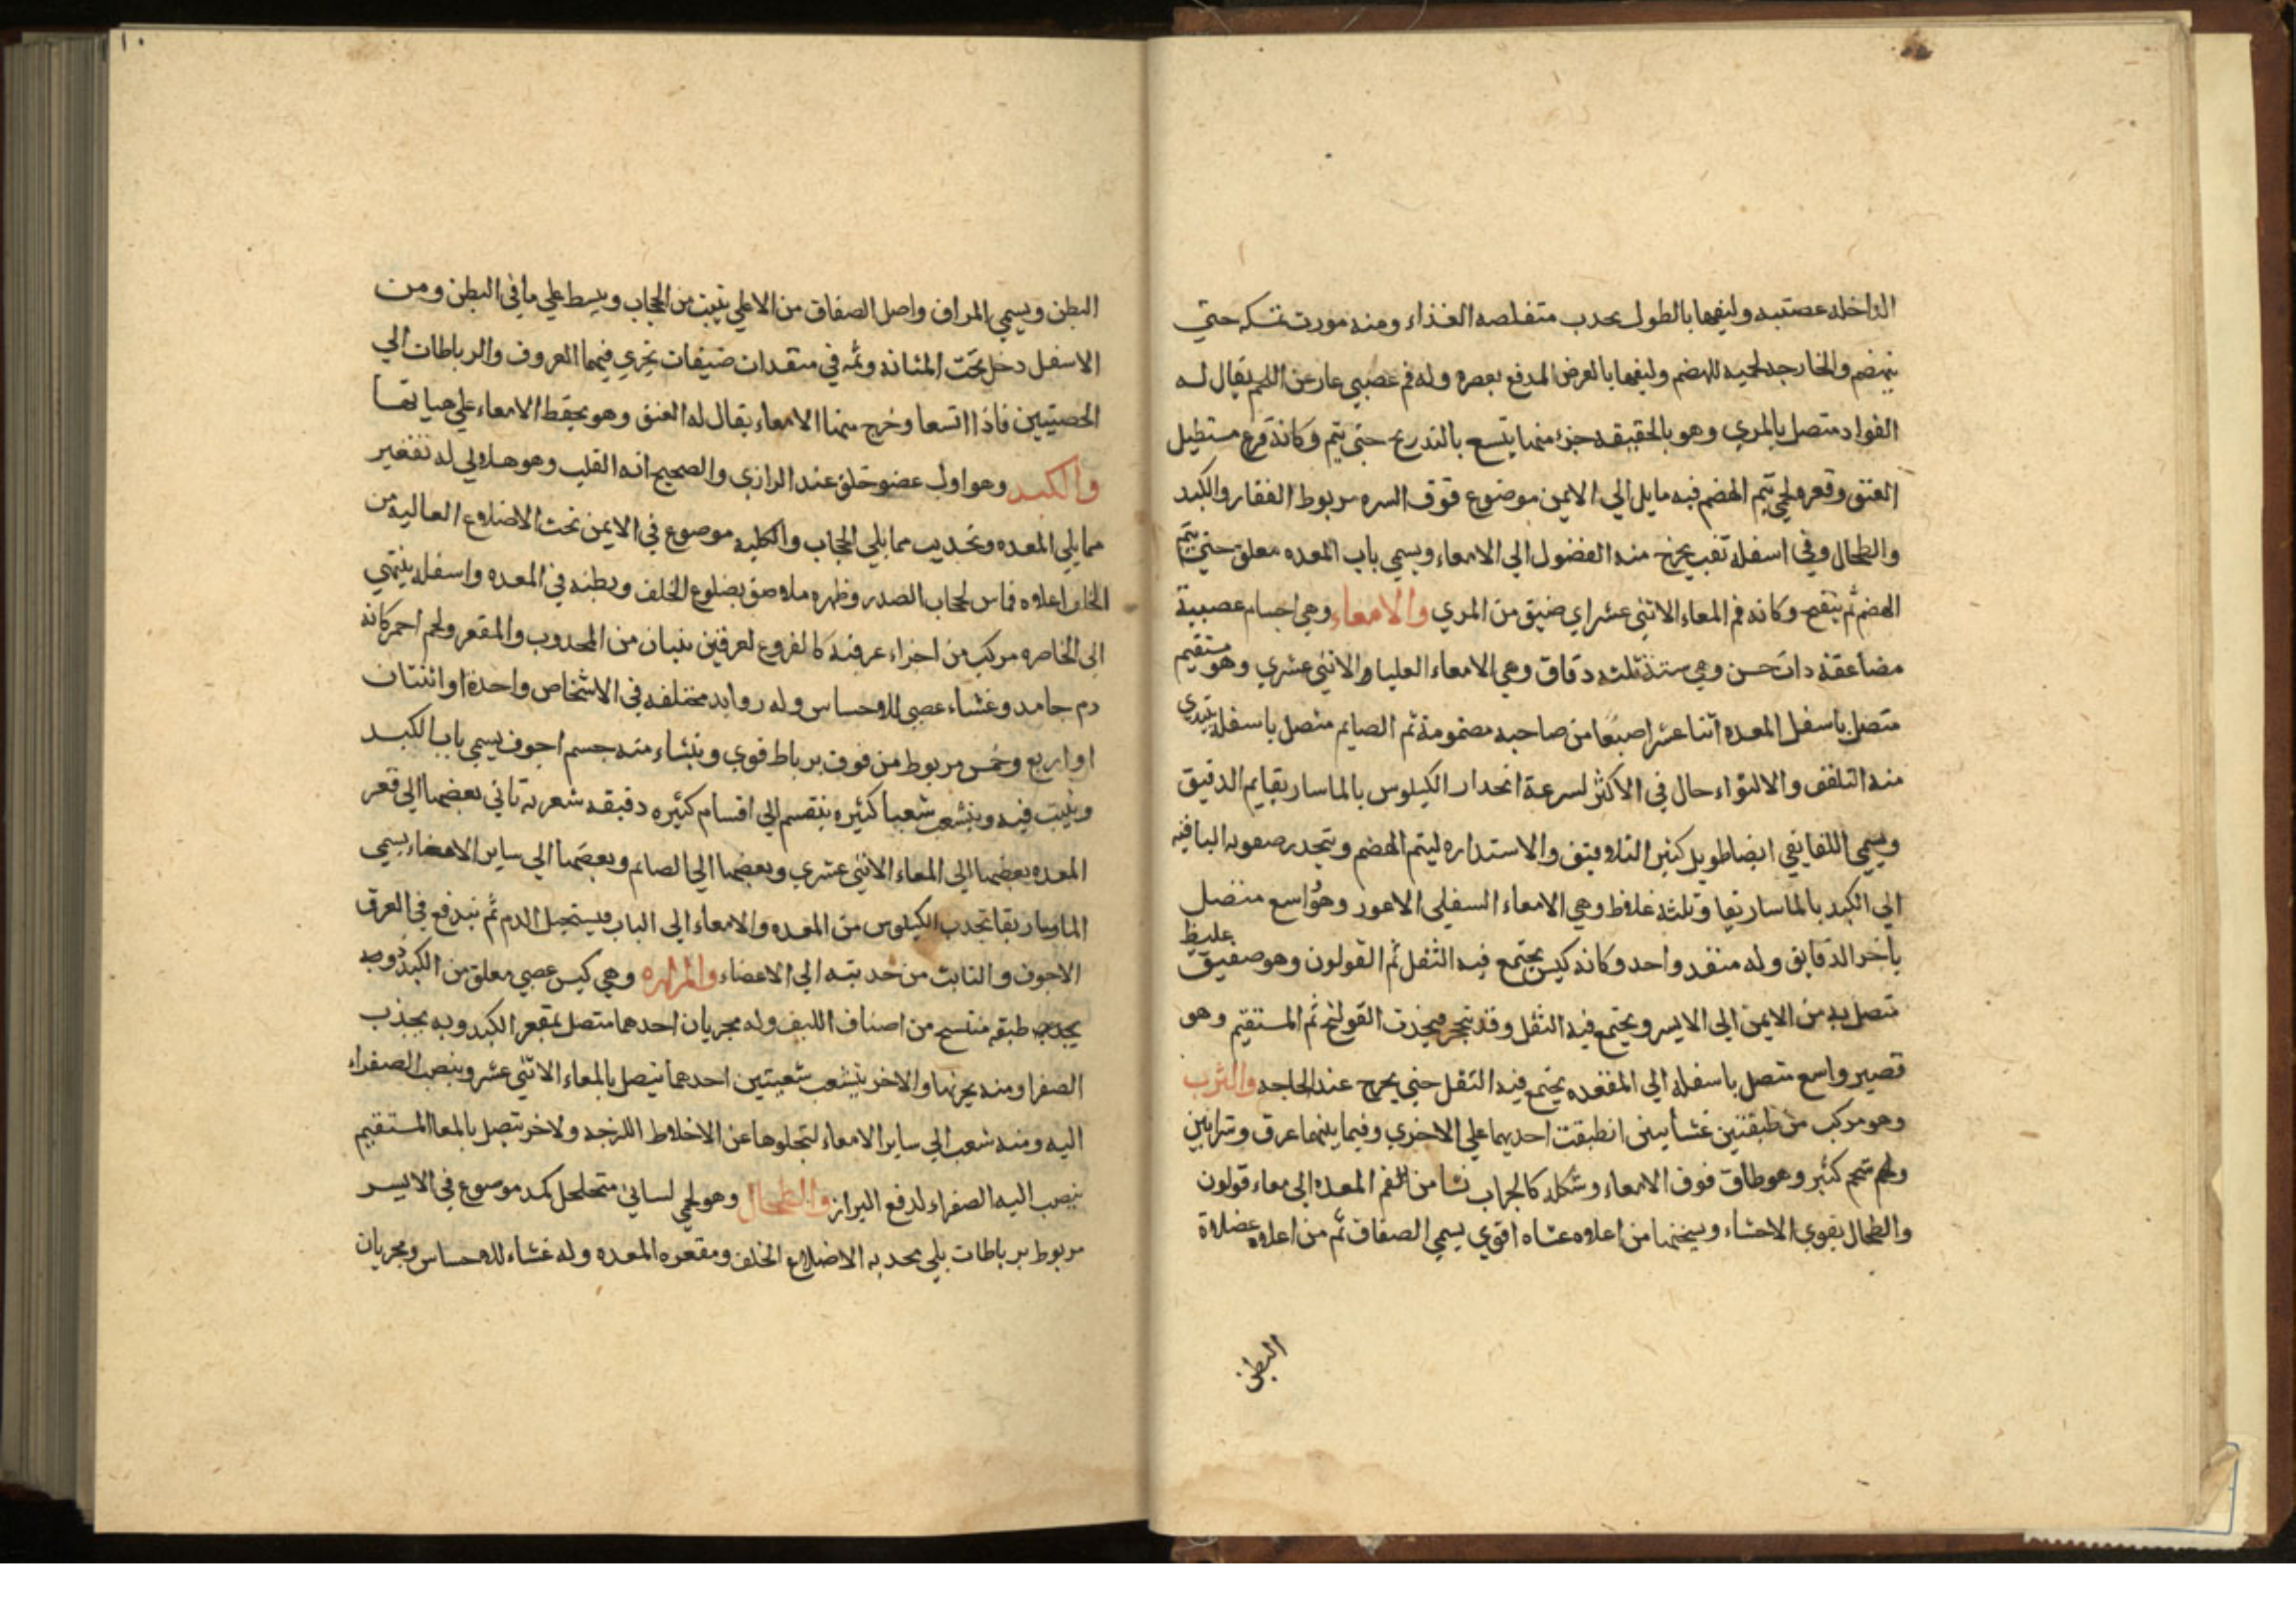 الداخله عصتبيه وليفها بالطول يحدب متفلصه الغذاء ومنه مورت تمسكه حتي
ينهضم والخارجه لحميه للهضم وليفها بالعرض المدفع بعصره وله فم عصبي عار عن اللحم يقال له
الفواد متصل بالمري وهو بالحقيقه جزء منها يتسع بالتدريج حتي يتم وكانه قرع مستطيل
العنق وقعره لحمي يتم الهضم فيه مايل الي الايمن موضوع فوق السره مربوط الفقار والكبد
والطحال وفي اسفله ثقب يخرج منه الفضول الي الامعاء ويسمي باب المعده معلق حتي يتم
الهضم ثم ينفتح وكانه فم المعاء الاثني عشر اي ضيق من المري والامعاء وهي اجسام عصبية
مضاعفة ذات حسن وهي ستة ثلثه دقاق وهي الامعاء العليا والاثني عشري وهو مستقيم
متصل باسفل المعده اثنا عشر اصبعا من صاحبه مضمومة ثم الصايم متصل باسفله يبتدي
منه التلفف والالتواء خال في الاكثر لسرعة انحدار الكيلوس بالماساريقا يم الدقيق
ويسمي اللفايفي ايضا طويل كثير التلافيف والاستداره ليتم الهضم وينحدر صفوته الباقيه
الي الكبد بالماساريقا وثلثه غلاظ وهي الامعاء السفلي الاعور وهو واسع متصل
باخر الدقايق وله منفد واحد وكانه كيس يجتمع فيه الثفل ثم القولون وهو صفيق غليظ
متصل به من الايمن الي الايسر ويجتمع فيه الثفل وقد يتحجر فيحدث القولنج ثم المستقيم وهو
قصير واسع متصل باسفله الي المقعده يجتمع فيه الثفل حتي يخرج عند الحاجه والثرب
وهو مركب من طبقتين غشائيتين انطبقت احديهما علي الاخري وفيما بينهما عرق وشرايين
ولحم شحم كثير وهو طاق فوق الامعاء وشكله كالجراب نشا من فم المعده الي معاء قولون
والطحال يقوي الاحشاء ويسخنها من اعلاه غشاه اقوي يسمي الصفاق ثم من اعلاه عضلاة
البطن
١٠
البطن ويسمي المراق واصل الصفاق من الاعلي ينبت من الحجاب ويبسط علي ما في البطن ومن
الاسفل دخل تحت المثانه وثمه في منفدات ضيقات يجري فيهما العروق والرباطات الي
الخصيتين فاذا اتسعا وخرج منها الامعاء يقال له الفتق وهو يحفظ الامعاء علي حياتها
والكبد وهو اول عضو خلق عند الرازي والصحيح انه القلب وهو هلالي له تقعير
مما يلي المعده وتحديب مما يلي الحجاب والكليه موضوع في الايمن تحت الاضلاع العاليه من
الخلف اعلاه مماس لحجاب الصدر وظهره ملاصق بضلوع الخلف وبطنه في المعده واسفله ينتهي
الي الخاصره مركب من اجزاء عرقية كالفروع لعرقين ينبتان من المحدوب والمقعر ولحم احمر كانه
دم جامد وغشاء عصبي للاحساس وله زوايد مختلفه في الاشخاص واحدة او اثنتان
او اربع وخمس مربوط من فوق برباط قوي وينشاء منه جسم اجوف يسمي باب الكبد
وينبت فيه ويتشعب شعبا كثيره ينقسم الي اقسام كثيره دقيقه شعريه تاتي بعضها الي قعر
المعده بعضها الي المعاء الاثني عشري وبعضها الي الصائم وبعضها الي ساير الامعاء يسمي
الماساريقا تجدب الكيلوس من المعده والامعاء الي الباب فيستحيل الدم ثم يندفع في العرق
الاجوف والنابت من حدبته الي الاعضاء والمراره وهي كيس عصبي معلق من الكبد ذو
طبقه منتسج من اصناف الليف وله مجريان احدهما متصل بمقعر الكبد وبه يجذب
الصفرا ومنه يجريها والاخر يتشعب شعبتين احدهما يتصل بالمعاء الاثني عشر وينصب الصفراء
اليه ومنه شعب الي ساير الامعاء لتجلوها عن الاخلاط اللزجه ولاخر يتصل بالمعا المستقيم
ينصب اليه الصفراء لدفع البراز والطحال وهو لحمي لساني متخلخل كمد موضوع في الايسر
مربوط برباطات يلي محدبه الاضلاع الخلف ومقعره المعده وله غشاء للاحساس ومجريان